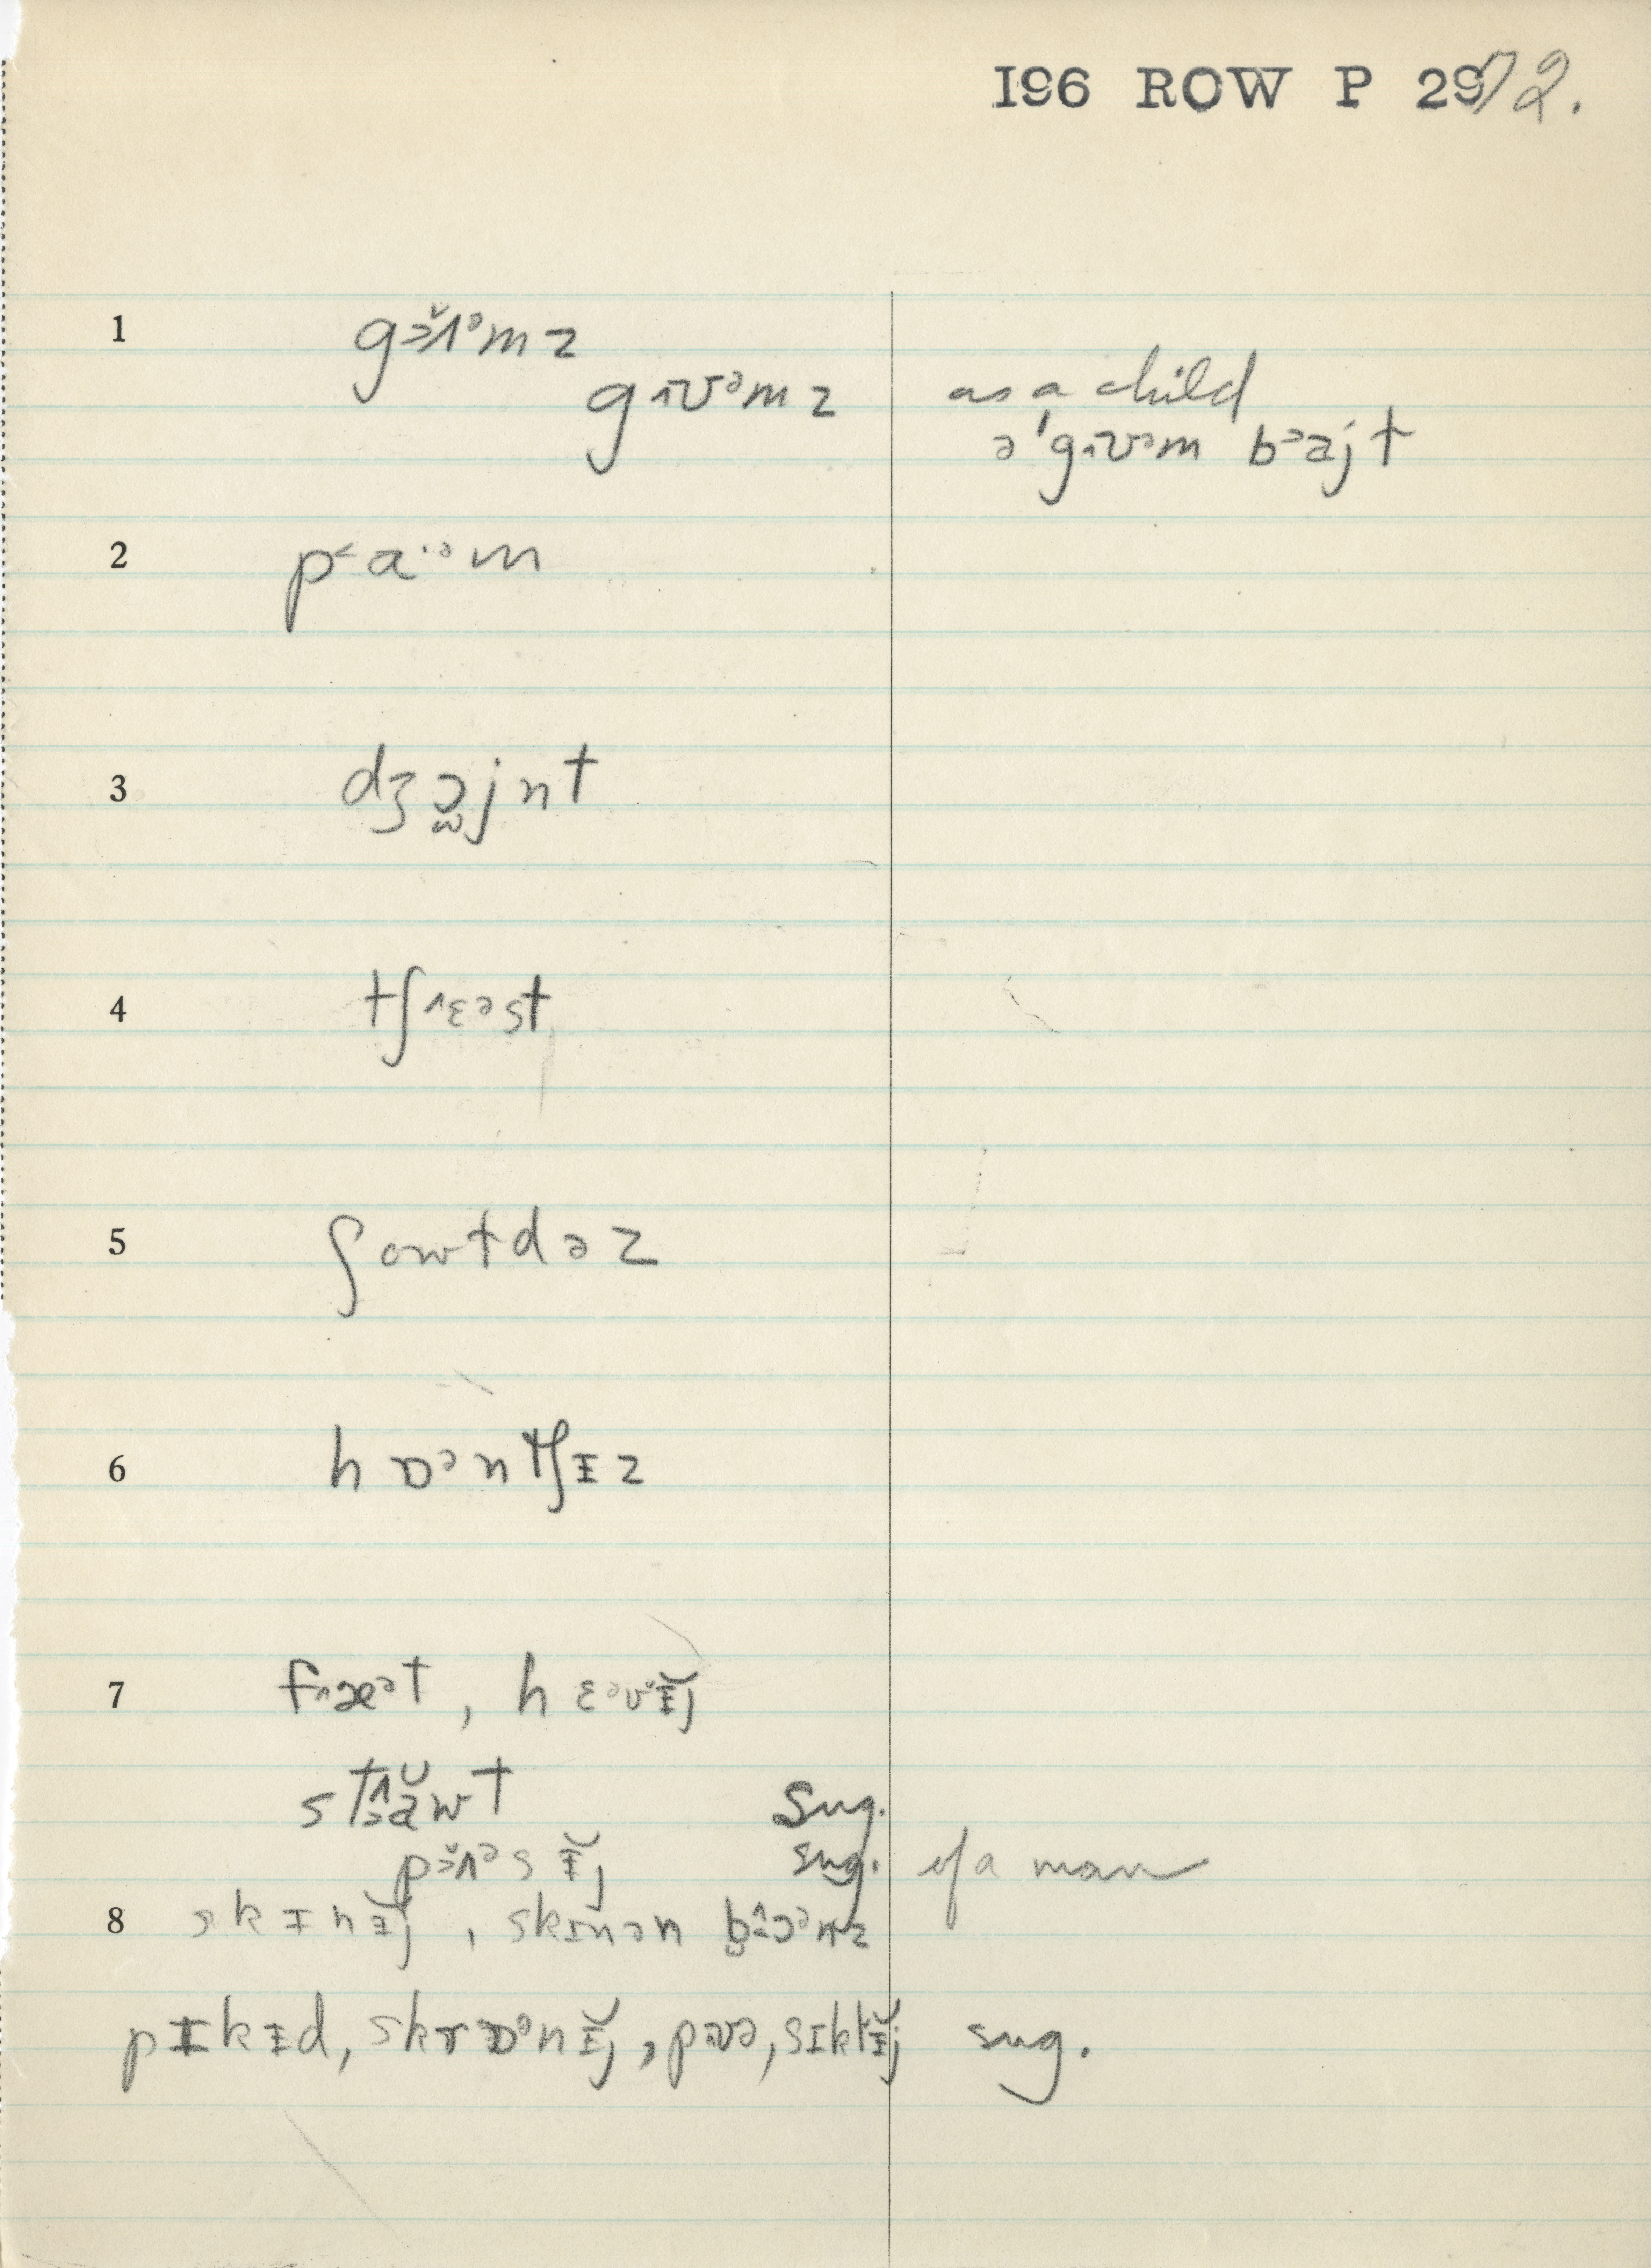 I96 ROW P 29/72.
1 gɔ̆ʌᵊmz
gʌʊᵊmz as a child
ə'gʌʊᵊm bᵊajt
2 p˂a·ᵊm
3 dʒɔ̫jnt
4 tʃ˄ɛᵊst
5 ʃowtdəz
6 hɒᵊntʃɪz
7 f˄æᵊt, hɛᵊvɪ̆j
st˄ăwt sug.
pɔ̆ʌᵊsɪ̆j sug. of a man
8 skɪnɪ̆j, skɪnən
pɪkɪd, skrɒᵊnɪ̆j, pʊə, sɪklɪ̆j sug.